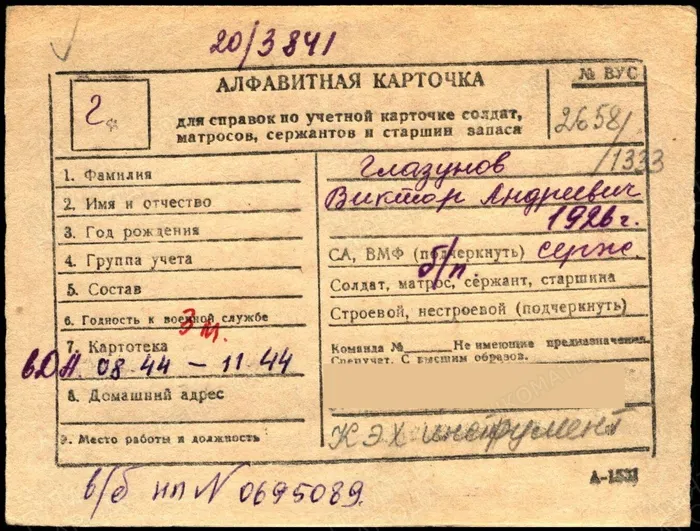 20/3841
АЛФАВИТНАЯ КАРТОЧКА
№ ВУС
Г.
для справок по учетной карточке солдат,
матросов, сержантов и старшин запаса
2658/
/1333
1. Фамилия
Глазунов
2. Имя и отчество
Виктор Андреевич
3. Год рождения
1926 г.
4. Группа учета
СА, ВМФ (подчеркнуть) серж.
5. Состав
б/п
Солдат, матрос, сержант, старшина
6. Годность к военной службе
Строевой, нестроевой (подчеркнуть)
3 м.
7. Картотека
Команда № Не имеющие предназначения.
Сверхучет. С высшим образов.
08.44 — 11.44
8. Домашний адрес
9. Место работы и должность
КЭХ инструмент
А-1531
в/б НП N 0695089.